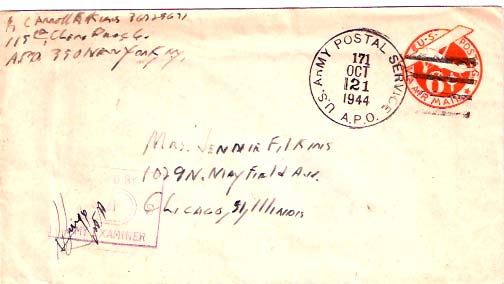 Carroll Filkins 36729671
115th Chem. Proc. Co.
APO 350 New York, N.Y.
U.S. ARMY POSTAL SERVICE
171
OCT
21
1944
A.P.O.
U.S. POSTAGE
6¢
VIA AIR MAIL
Mrs. Jennie Filkins
1029 N. Mayfield Av.
Chicago, 51, Illinois
BY
ARMY EXAMINER